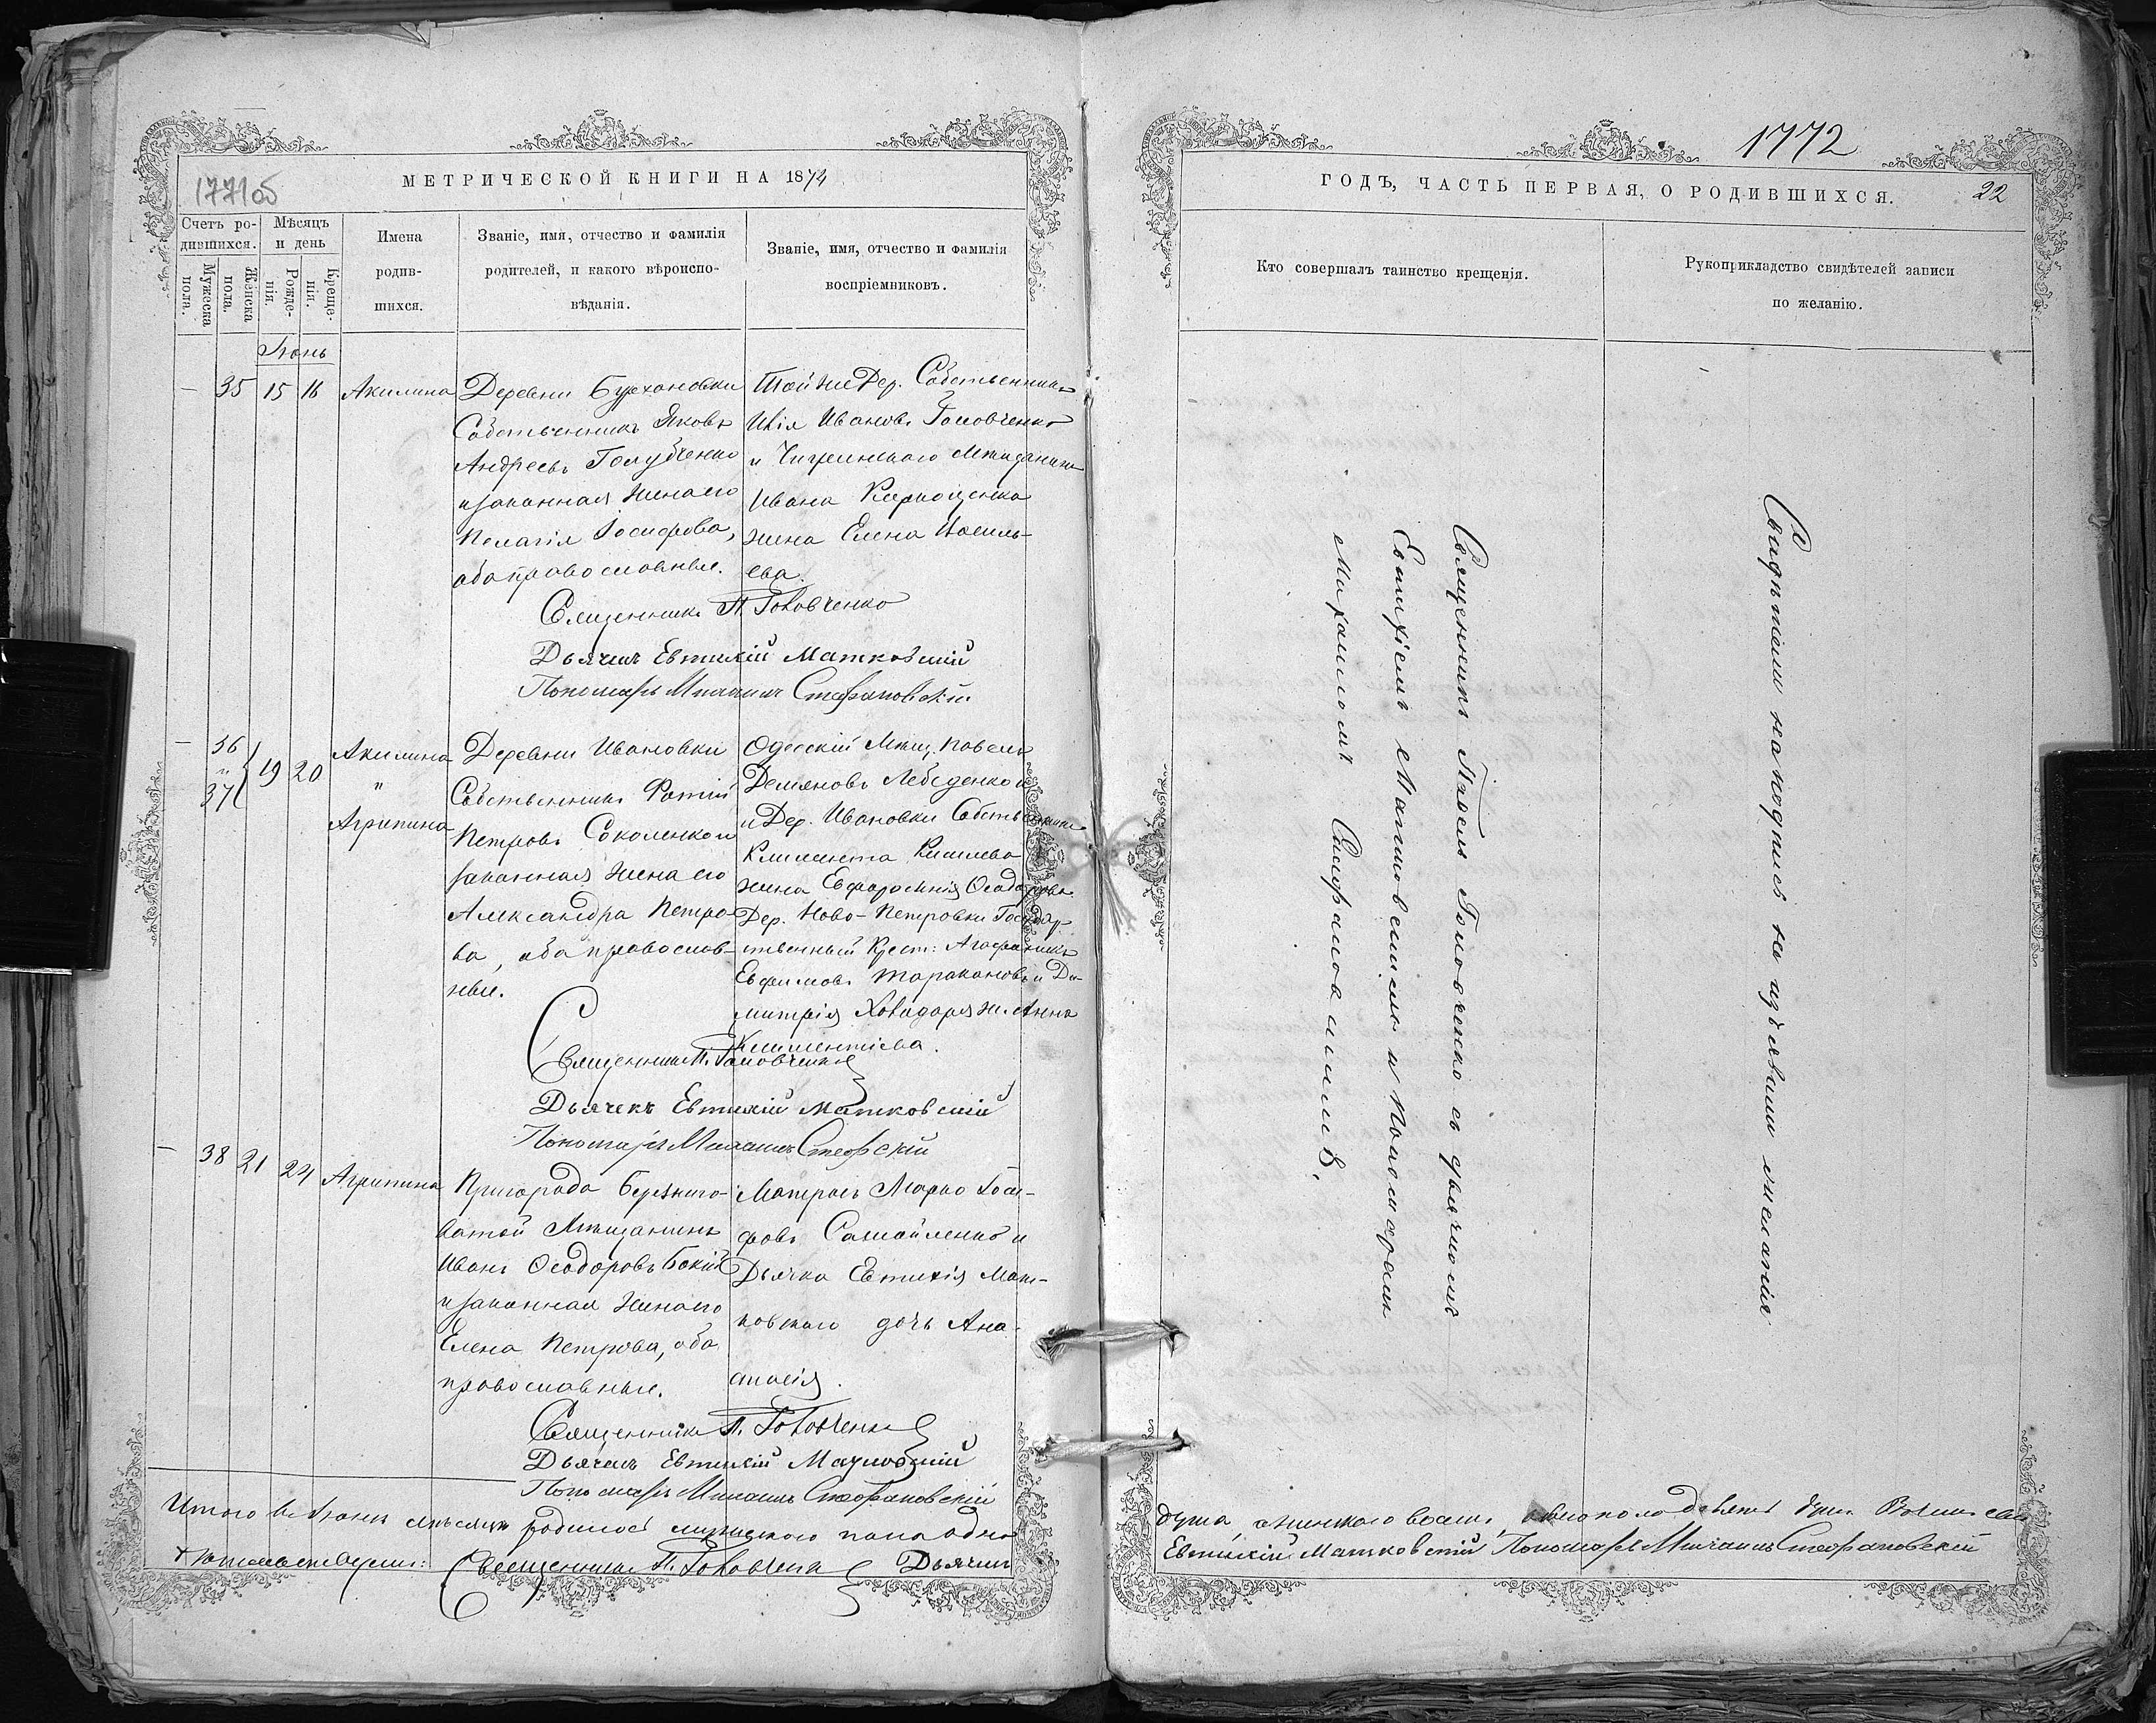 1771об
МЕТРИЧЕСКОЙ КНИГИ НА 1874
Счетъ ро-
дившихся.
Мужеска
пола.
Женска
пола.
Мѣсяцъ
и день
Рожде-
нія.
Креще-
нія.
Имена
родив-
шихся.
Званіе, имя, отчество и фамилія
родителей, и какого вѣроиспо-
вѣданія.
Званіе, имя, отчество и фамилія
воспріемниковъ.
Іюнь
— 35 15 16 Акилина
Деревни Бурхановки
Собственникъ Яковъ
Андреевъ Голубченко
и законная жена его
Пелагія Іосифова,
оба православные.
Той же Дер. Собственникъ
Илія Ивановъ Головченко
и Чигринскаго Мѣщанина
Ивана
жена Елена Василь-
ева.
Священникъ П. Головченко
Дьячекъ Евтихій Матковскій
Пономарь Михаилъ Стефановскій
— 36
и
37
19 20
Акилина
"
Агрипина
Деревни Ивановки
Собственникъ Фотій
Петровъ Соколенко и
законная жена его
Александра Петро-
ва, оба православ-
ные.
Одесскій Мѣщ. Павелъ
Демяновъ Лебеденко
и Дер. Ивановки Собственника
Климента Киселева
жена Евфросинія Ѳеодорова.
Дер. Ново-Петровки Государ
ственный Крест: Агафоникъ
Евфимовъ Таракановъ и Ди-
митрія ж. Анна
Климентіева.
Священникъ П. Головченко
Дьячекъ Евтихій Матковскій
Пономарь Михаилъ Стефскій
— 38 21 24 Агрипина
Пригорода Березнего-
ватой Мѣщанинъ
Иванъ Ѳеодоровъ Бокій
и законная жена его
Елена Петрова, оба
православные.
Матросъ Марко Іоси-
фовъ Самойленко и
Дьячка Евтихія Мат-
ковскаго дочь Ана-
стасія.
Священникъ П. Головченко
Дьячекъ Евтихій Матковскій
Пономарь Михаилъ Стефановскій
Итого въ Іюнѣ мѣсяцѣ родилось мужеского пола одна
Священникъ П. Головченко Дьячекъ
1772
ГОДЪ, ЧАСТЬ ПЕРВАЯ, О РОДИВШИХСЯ.
22
Кто совершалъ таинство крещенія.
Рукоприкладство свидѣтелей записи
по желанію.
Священникъ Павелъ Головченко съ дьячкомъ
Евтихіемъ Матковскимъ и Пономаремъ
Михаиломъ Стефановскимъ.
Свидѣтели на подпись не изъявили желанія
душа, женскаго восемь, обоего пола девять душъ
Евтихій Матковскій Пономарь Михаилъ Стефановскій